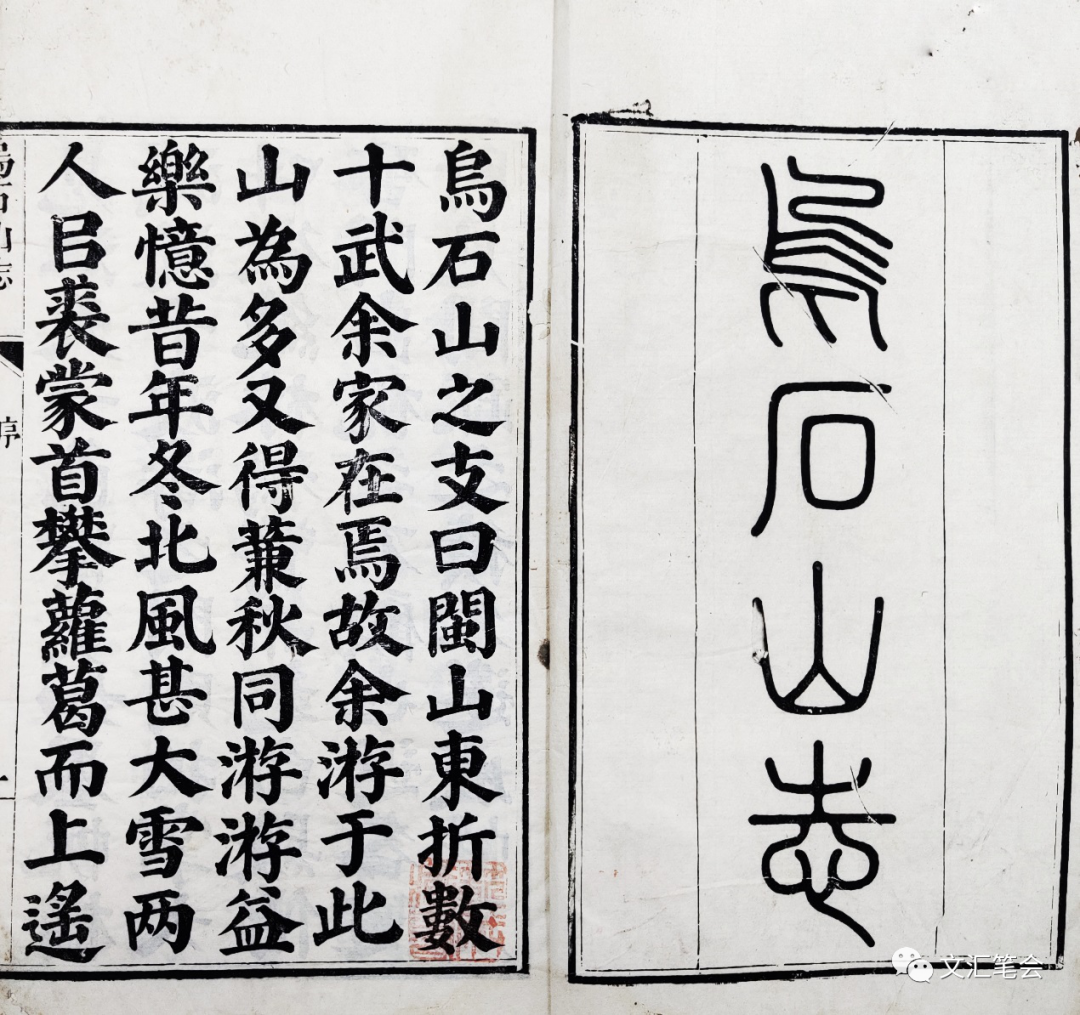 烏石山志
烏石山之支曰閩山東折數
十武余家在焉故余游于此
山為多又得蒹秋同游游益
樂憶昔年冬北風甚大雪两
人㠯裘蒙首攀蘿葛而上遙
烏石山志
序
一
文汇笔会